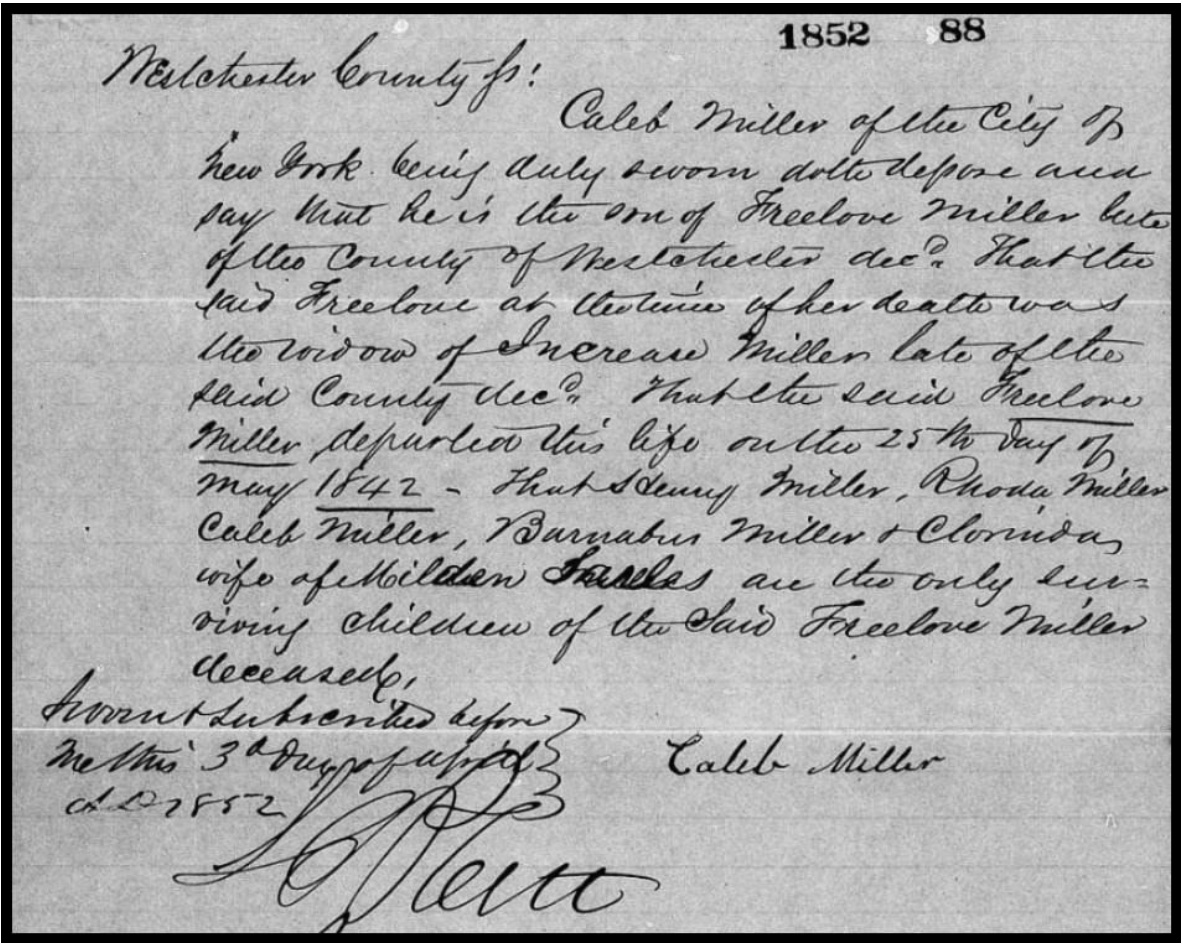 1852 88
Westchester County ss:
Caleb Miller of the City of
New York being duly sworn doth depose and
say that he is the son of Freelove Miller late
of the County of Westchester decd. That the
said Freelove at the time of her death was
the widow of Increase Miller late of the
said County decd. That the said Freelove
Miller departed this life on the 25th day of
May 1842 - That Henry Miller, Rhoda Miller
Caleb Miller, Barnabus Miller & Clorinda
wife of are the only sur=
viving children of the Said Freelove Miller
deceased.
Sworn & Subscribed before
me this 3d day of April
AD 1852
Caleb Miller